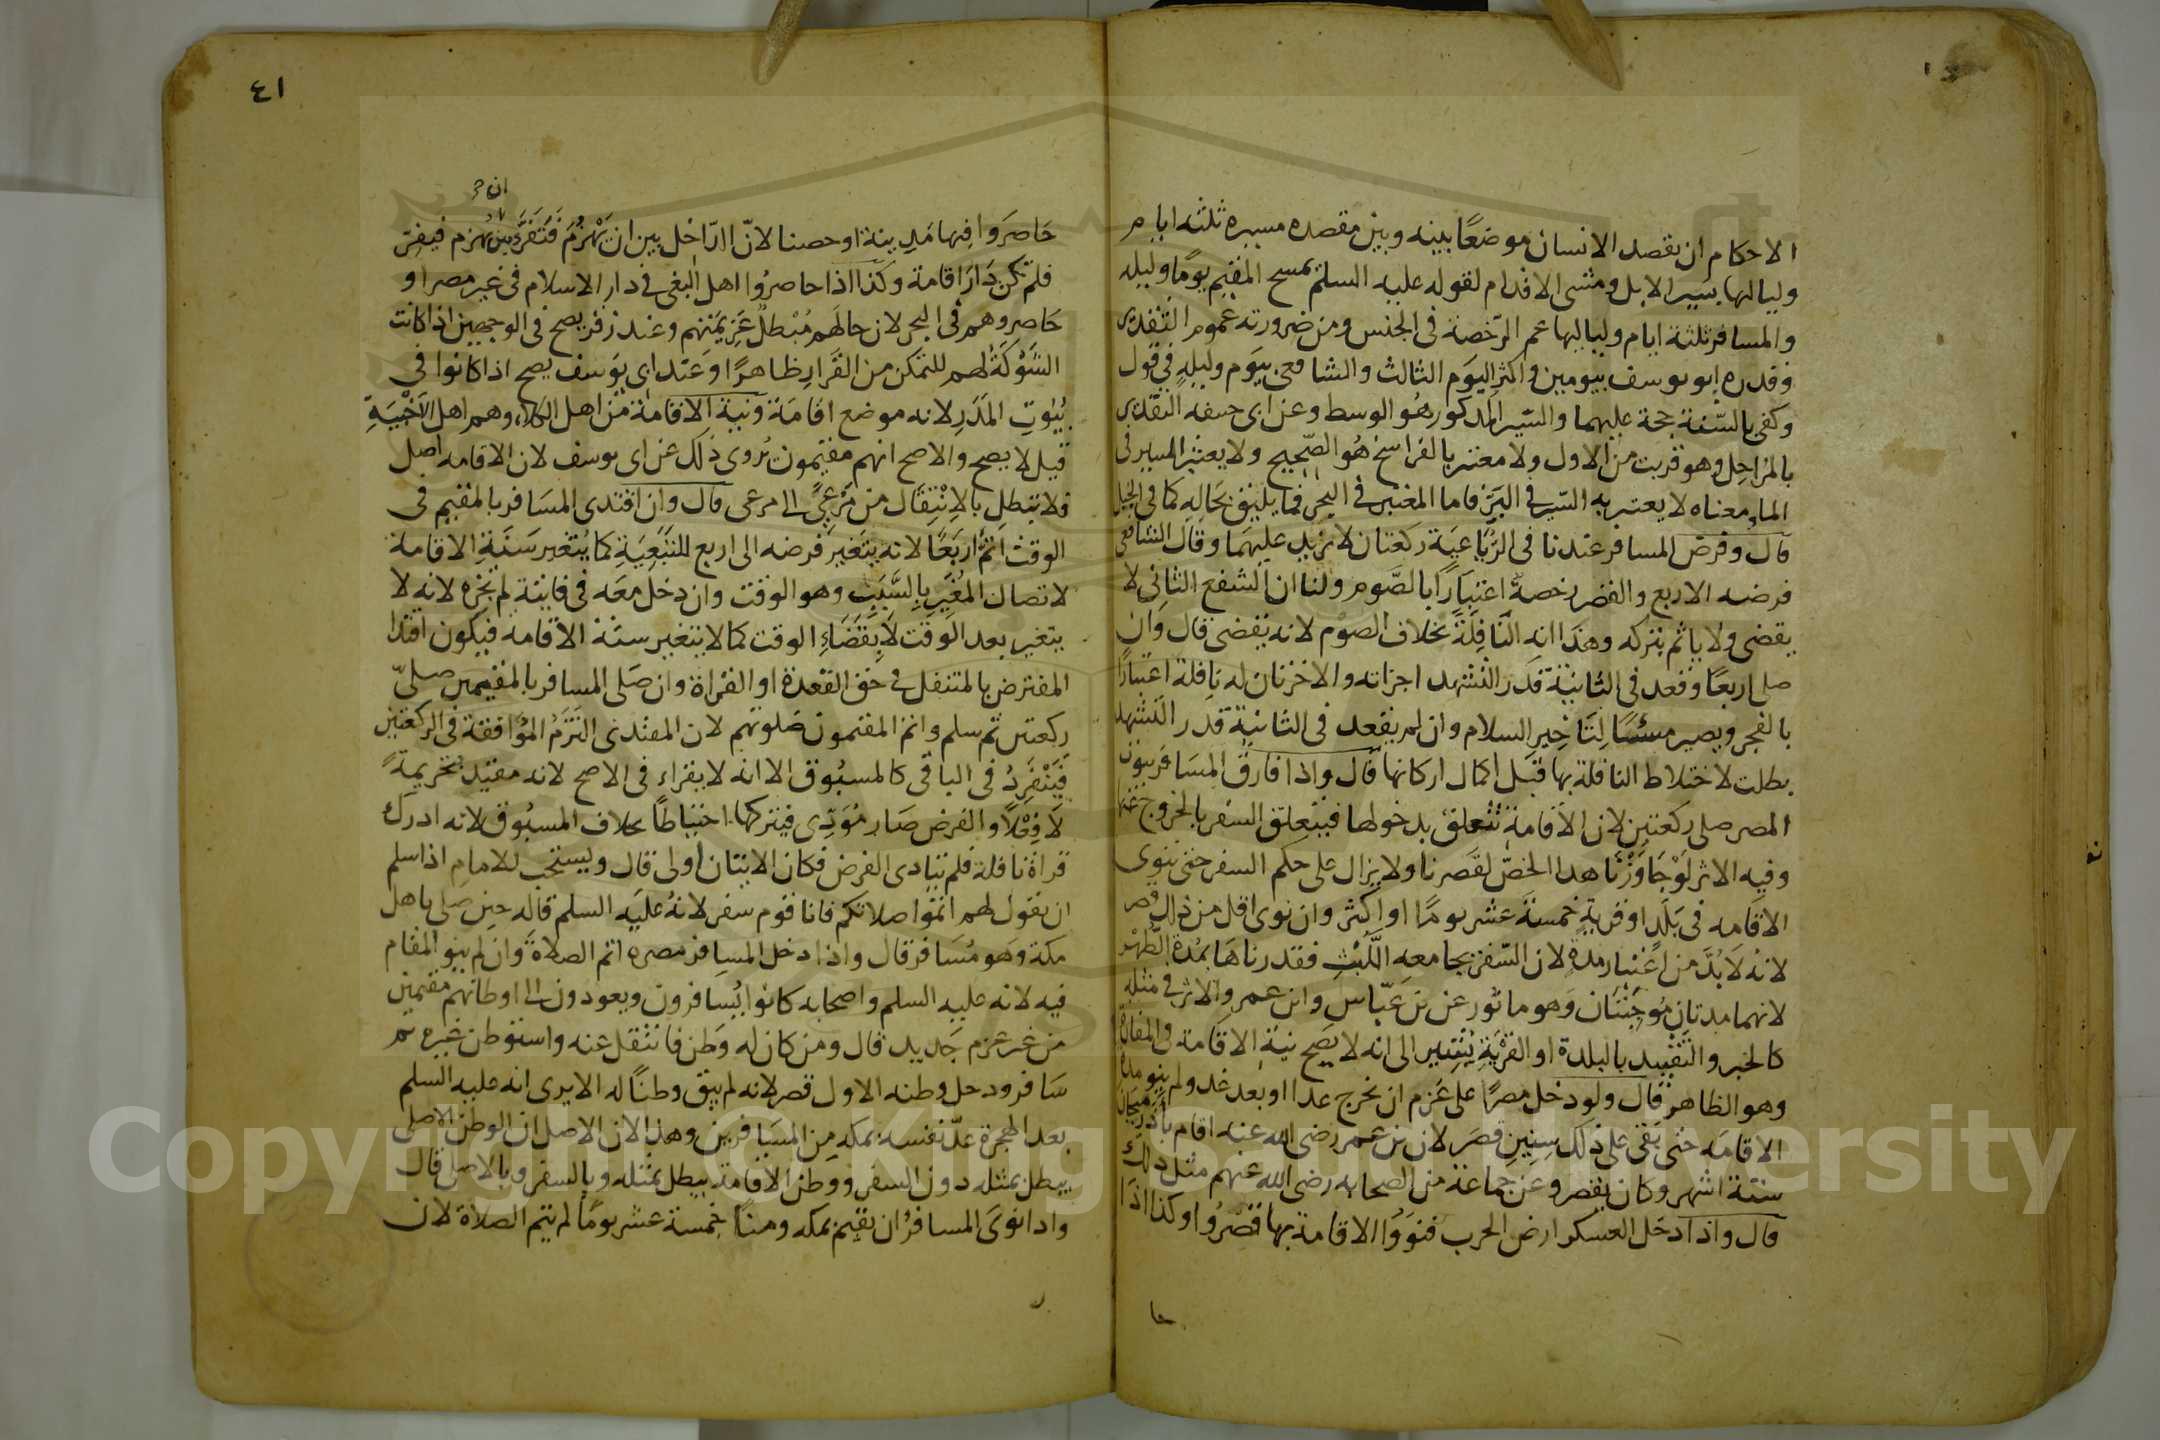 الاحكام ان يقصد الانسان موضعًا بينه وبين مقصده مسيرة ثلثة ايام
ولياليها بسير الابل ومشى الاقدام لقوله عليه السلم يمسح المقيم يومًا وليله
والمسافر ثلثة ايام ولياليها عم الرّخصة فى الجنس ومن ضرورته عموم التقدير
وقدره ابو يوسف بيومين واكثر اليَوم الثالث والشافعى بيَوم وليلةٍ فى قول
وكفى بالسّنة حجة عليهما والسّير المذكور هُو الوسط وعن ابى حنيفه التقدير
بالمرَاحِل وهو قريب من الاول ولا معتبر بالفراسخ هُو الصّحِيح ولا يعتبر المسير فى
الماء معناه لا يعتبر به السّير فى البَرّ فاما المعتبر فى البحر فما يليق بحَالِهِ كما فى الجبل
قال وفرض المسافر عندنا فى الرُّبَاعِيَة ركعتان لا يزيد عليهمَا وقال الشافعى
فرضه الاربع والقصر رخصة اعتبَارًا بالصَّوم ولنا ان الشفع الثانِى لا
يقضى ولا ياثم بتركه وهذا انه النّافِلَةُ بخلاف الصوْم لانه يُقضى قال وَان
صلى اربعًا وقعد فى الثانيَة قدَر التشهد اجزاته والاخرَتان له نافِلة اعتبارًا
بالفجر ويصير مسُيئًا لِتَاخِير السلام وان لم يقعد فى الثانية قدر التشهد
بطلت لاختلاط النافلة بها قبَل اكمال اركانها قال واذا فارق المِسَافر بيوت
المصر صلى ركعتين لان الاقامة تتعلق بدخولها فيتعلّق السفر بالخروج عنها
وفيه الاثر لوْجَاوَزْنَا هذا الخصّ لقصَرنا ولا يزال على حكم السفر حتى ينوى
الاقامه فى بَلَدٍ او قريةٍ خمسَة عشر يومًا او اكثر وان نوى اقل من ذلك قصر
لانه لا بُدَّ من اعْتبار مدةٍ لان السّفر يجامعه اللَّبْثِ فقدرناهَا بمُدة الطهْر
لانهما مدتانِ مُوجِبَتَان وَهو ماثور عن بن عَبّاس وابن عمر والاثر فى مثله
كالخبر والتقْييد بالبلدة او القرْيَة يُشِير الى انه لا يصح نيَة الاقامة فى المفازة
وهو الظاهر قال ولو دخل مصرًا على عَزم ان يخرج غدا او بعد غد ولم ينو مدة
الاقامَه حتى بقى على ذلك سِنِين قصَر لان بن عمر رضى الله عنه اقام باذربيجان
ستة اشهر وكان يقصر وعن جماعة من الصحابه رضى الله عنهم مثل ذلك
قال واذا دخل العسكر ارض الحرب فنوَوُا الاقامة بها قصَرُوا وكذا اذا
حا
٤١
ان
حَاصَروا فيها مَدِينة او حصنا لانّ الدّاخِل بين ان يَهْزُمَ فَتَقَرَّ وبين يُهْزم فيفِرّ
فلم تكن دَار اقامة وكذا اذا حاصرُوا اهل البغى فى دار الاسلام فى غير مصر او
حَاصروهم فى البحر لان حالهم مُبْطلُ عَزِيمَتهم وعند زفر يصح فى الوجهين اذا كانت
الشَوْكَةُ لهم للتمكن من القَرارِ ظاهِرًا وعند ابى يوَسف يصح اذا كانوا فى
بُيُوتِ المَدَر لانه موضع اقامَة ونية الاقامَة من اهل الكلاء وهم اهل الاخْبيَةِ
قيل لا يصح والاصح انهم مقيمون يُروى ذلك عن ابى يوسف لان الاقامه اصل
فلا تبطل بالاِنْتِقال من مَرْعىً الى مرعى قال وان اقتدى المسَافر بالمقيم فى
الوقت اتمَّ اربَعًا لانه يتَغير فرضه الى اربع للتبَعِيَةِ كما يُتغير بنَيةِ الاقامة
لاتصال المُغَيِّرِ بِالسَّبَبِ وهو الوقت وان دخل معه فى فايتة لم يجُزه لانه لا
يتغير بعد الوَقت لاِنقِضَاءِ الوقت كما لا يتغير بنيّة الاقامة فيكون اقتدا
المفترض بالمتنفل فى حق القعدة او القراة وان صَلى المسافر بالمقيمين صلىّ
ركعتين ثم سلم واتم المقيمون صَلوتهم لان المقتدى التزَمَ المُوافقة فى الركعتين
فَيَنْفَرِدُ فى الباقى كالمسبُوق الا انه لا يقراء فى الاصح لانه مقتد تحريمَةً
لا فِعْلًا والفرض صَار مُؤدّى فيتركها احتياطًا بخلاف المسبُوق لانه ادرك
قراة نافلة فلم يتادى الفرض فكان الاتيان اولى قال ويستحب للامام اذا سلم
ان يقول لهم اتمّوا صلاتكم فانا قوم سفر لانهُ عليَه السلم قاله حين صلى باهل
مكة وَهو مُسَافر قال واذا دخل المسافر مصره اتم الصلاة وان لم ينو المقام
فيه لانه عليه السلم واصحابه كانوا يُسافرون ويعودون الى اوطانهم مقيمين
من غير عزم جَديد قال ومن كان له وَطن فانتقل عنه واستوطن غيره ثم
سَافر ودخل وطنه الاول قصر لانه لم يبق وطنًا له الا يرى انه عليه السلم
بعد الهجرة عدّ نفسه بمكه من المسَافرين وهذا لان الاصل ان الوطن الاصلى
يبطل بمثله دون السفر ووطن الاقامة يبطل بمثله وبالسفر وبالاصلى قال
واذا نوَى المسافر ان يقيم بمكه ومنًا خمسة عشر يومًا لم يتم الصلاة لان
Copyright © King Saud University